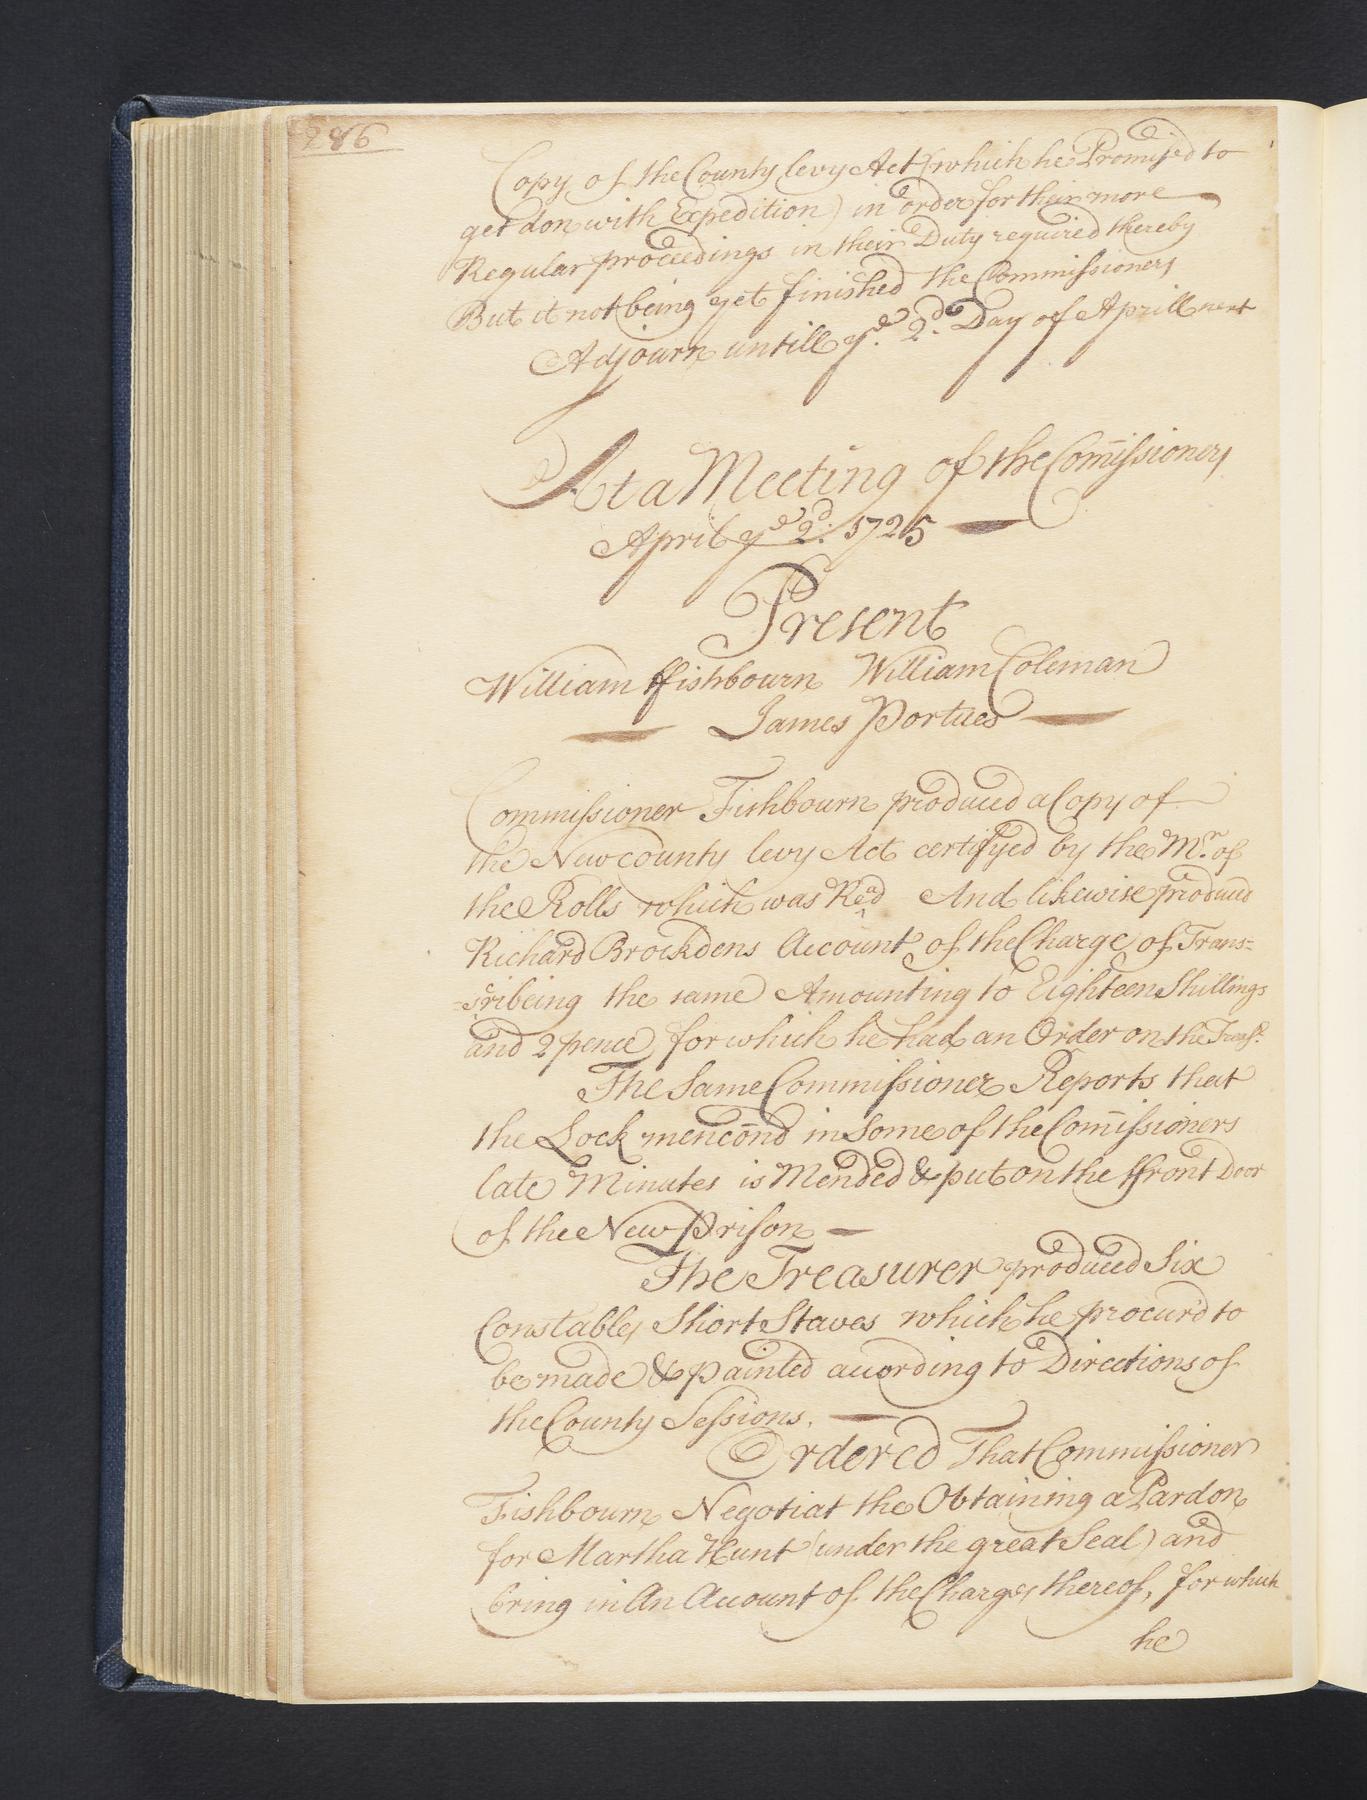 286
Copy of the County levy Act (which he Promised to
get don with Expedition) in order for their more
Regular proceedings in their Duty required thereby
But it not being yet finished the Commissioners
Adjourn untill ye. 2d. Day of Aprill next
At a Meeting of the Com̄issioners
April ye 2d: 1725
Present
William ffishbourn William Coleman
James Portues
Commissioner Fishbourn produced a Copy of
the New county levy Act certifyed by the Mr. of
the Rolls which was Read And likewise produced
Richard Brockdens Account of the Charge of Trans=
=cribeing the same Amounting to Eighteen Shillings
and 2 pence for which he had an Order on the Treasr.
The Same Commissioner Reports that
the Lock mencōnd in Some of the Com̄issioners
late Minutes is Mended & put on the ffront Door
of the New Prison
The Treasurer produced Six
Constables Short Staves which he procur'd to
be made & painted according to Directions of
the County Sessions.
Ordered That Commissioner
Fishbourn Negotiat the Obtaining a Pardon
for Martha Hunt (under the great Seal) and
bring in An Account of the Charges thereof, for which
he